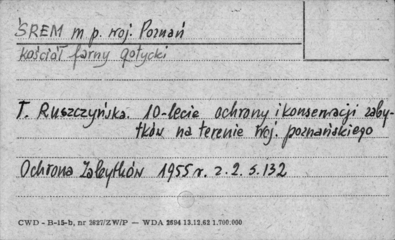 SREM m p. woj. Poznań
kościół farny gotycki
T. Ruszczyńska. 10-lecie ochrony i konserwacji zaby-
tków na terenie woj. poznańskiego
Ochrona Zabytków 1955 r. z. 2. s. 132
CWD - B-15-b, nr 3627/ZW/P — WDA 2694 13.12.62 1.700.000